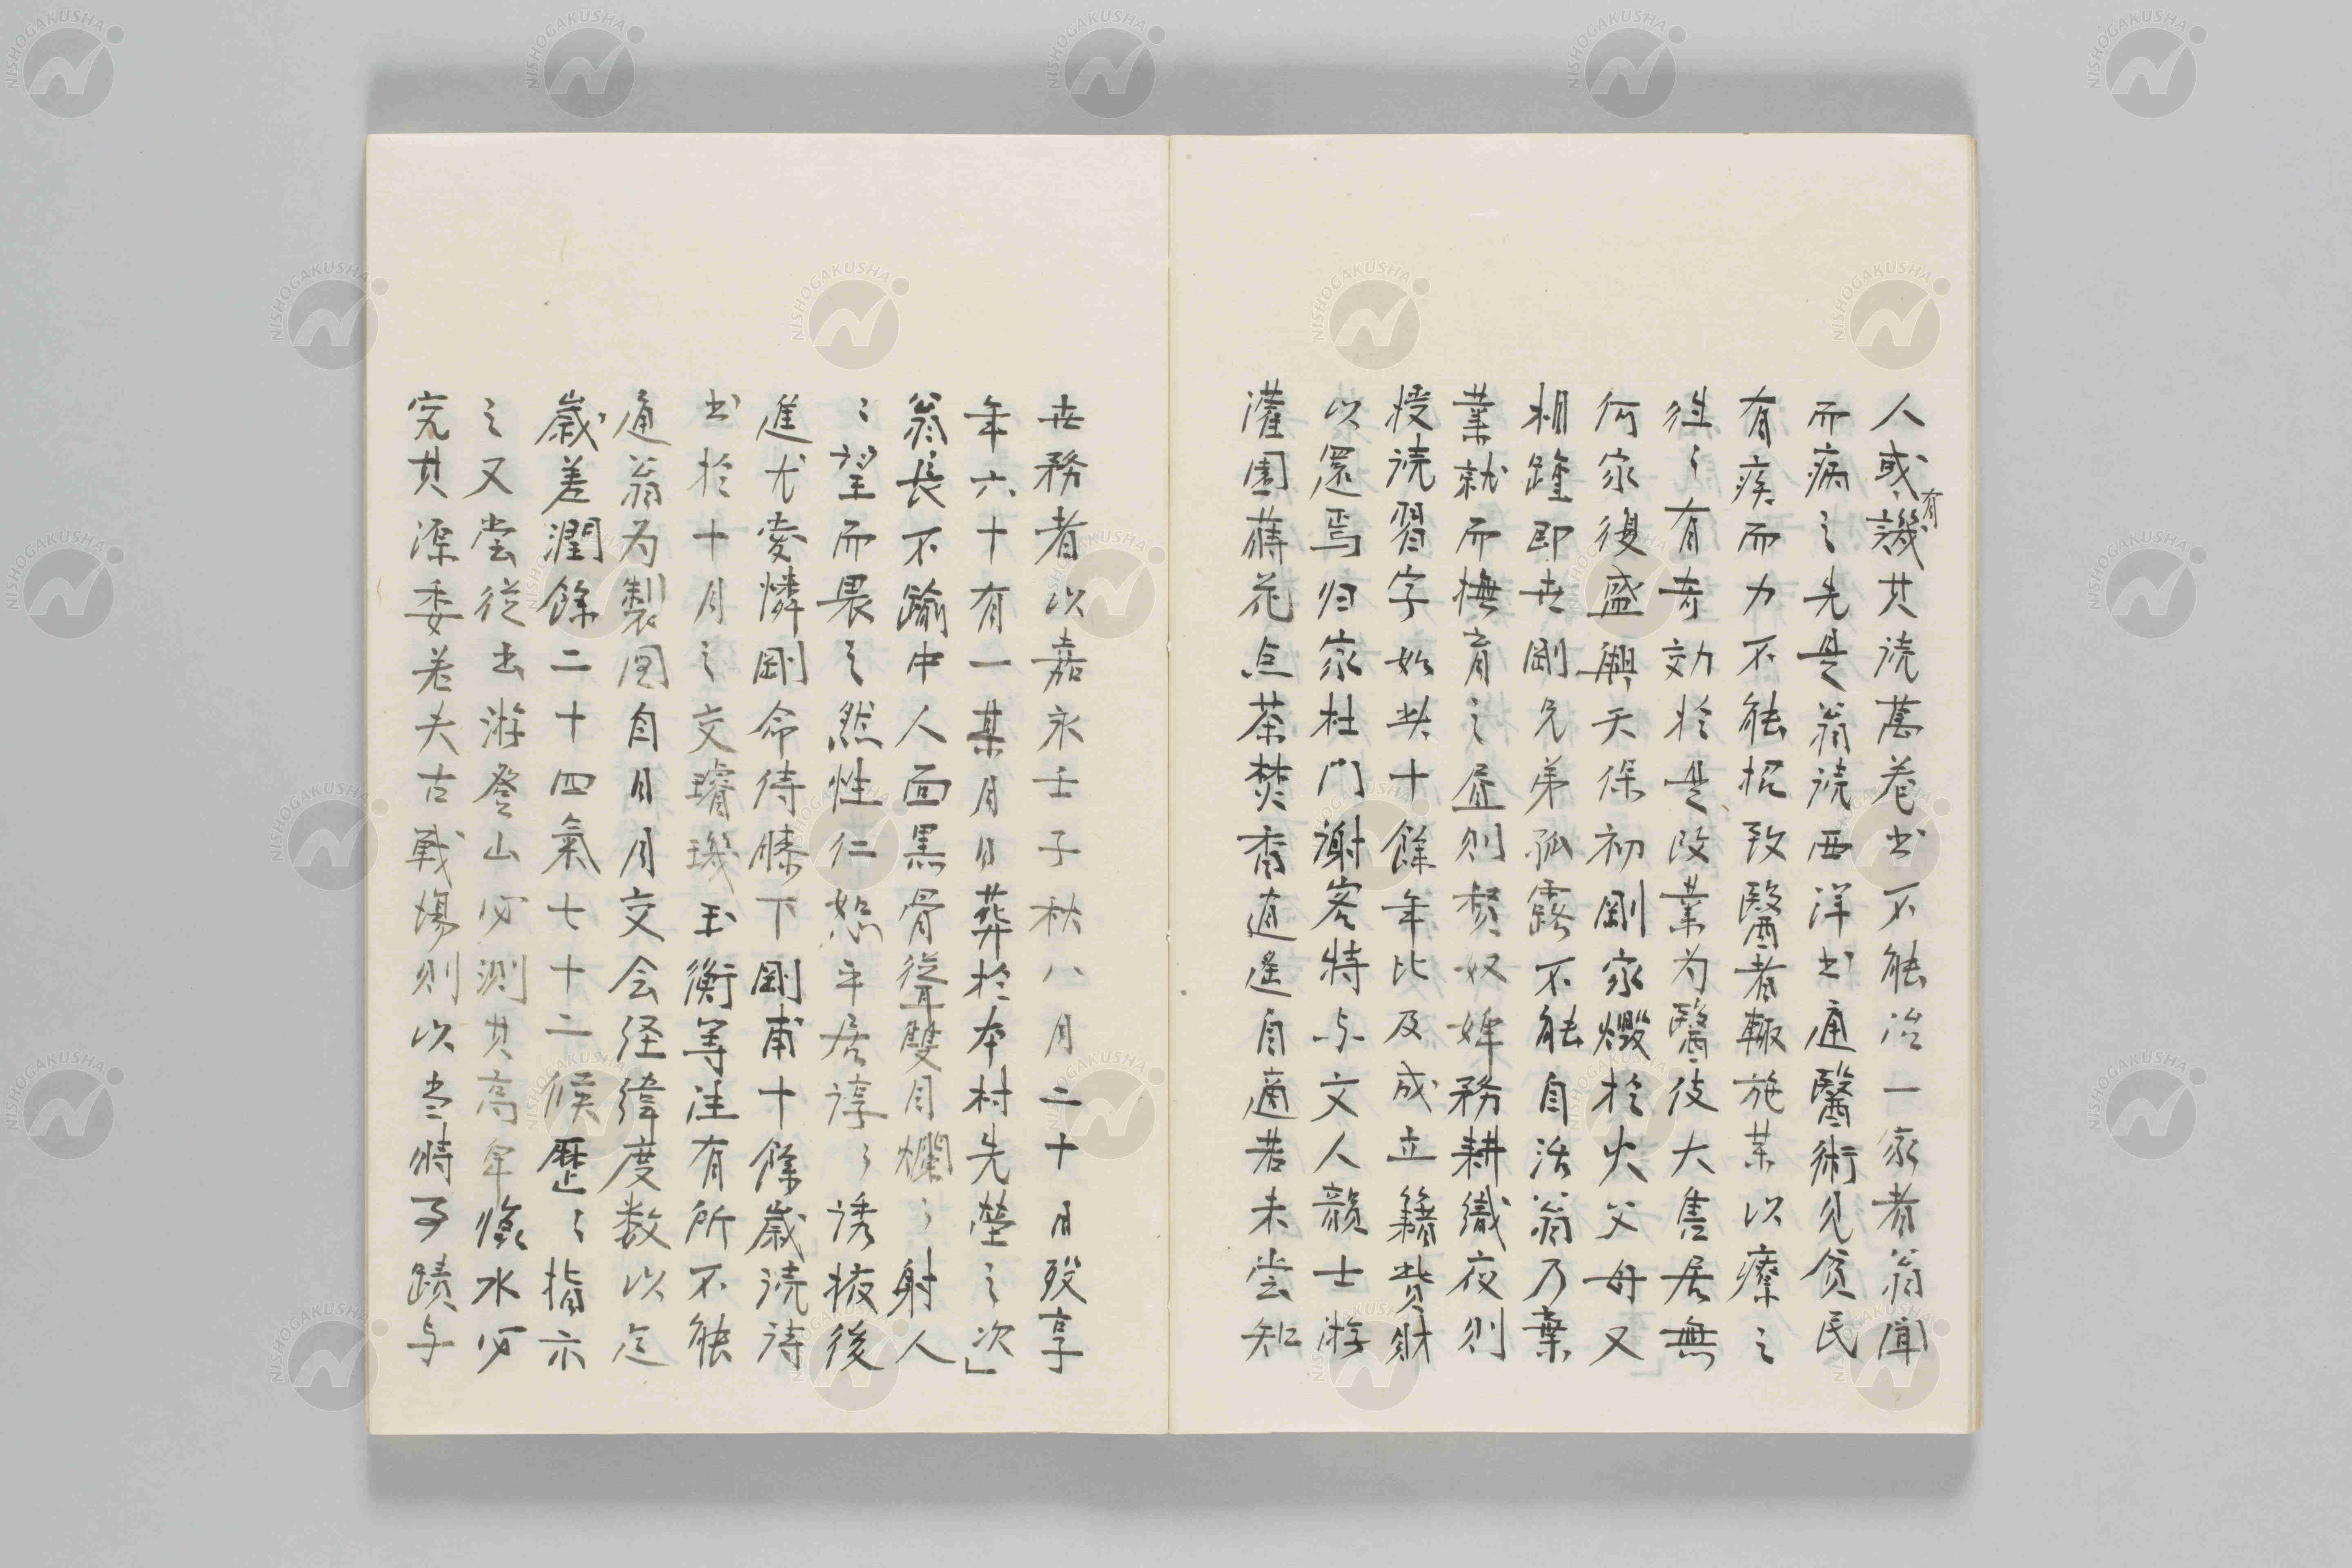 人或有譏其読萬巻書不能治一家者翁聞
而病之先是翁読西洋書通醫術見貧民
有疾而力不能招致醫者輙施薬以療之
徃々有奇効於是改業为醫伎大售居無
何家復盛興天保初剛家燬於火父母又
相踵即世剛兄弟孤露不能自活翁乃棄
業就而撫育之昼則督奴婢務耕織夜則
授読習字如此十餘年比及成立籍貲財
以還焉归家杜門謝客特与文人韻士游
灌園蒔花点茶焚香逍遙自適若未尝知
世務者以嘉永壬子秋八月二十日歿享
年六十有一某月日葬於本村先塋之次」
翁長不踰中人面黒骨聳雙目爛々射人
々望而畏之然性仁恕平居諄々誘掖後
進尤愛憐剛命侍膝下剛甫十餘歳読诗
书於十月之交璿璣玉衡等注有所不能
通翁为製図自日月交会経緯度数以迄
歳差潤餘二十四氣七十二候歴々指示
之又尝從出游登山必測其高卑臨水必
究其源委若夫古戦場則以当時事蹟与
NISHOGAKUSHA